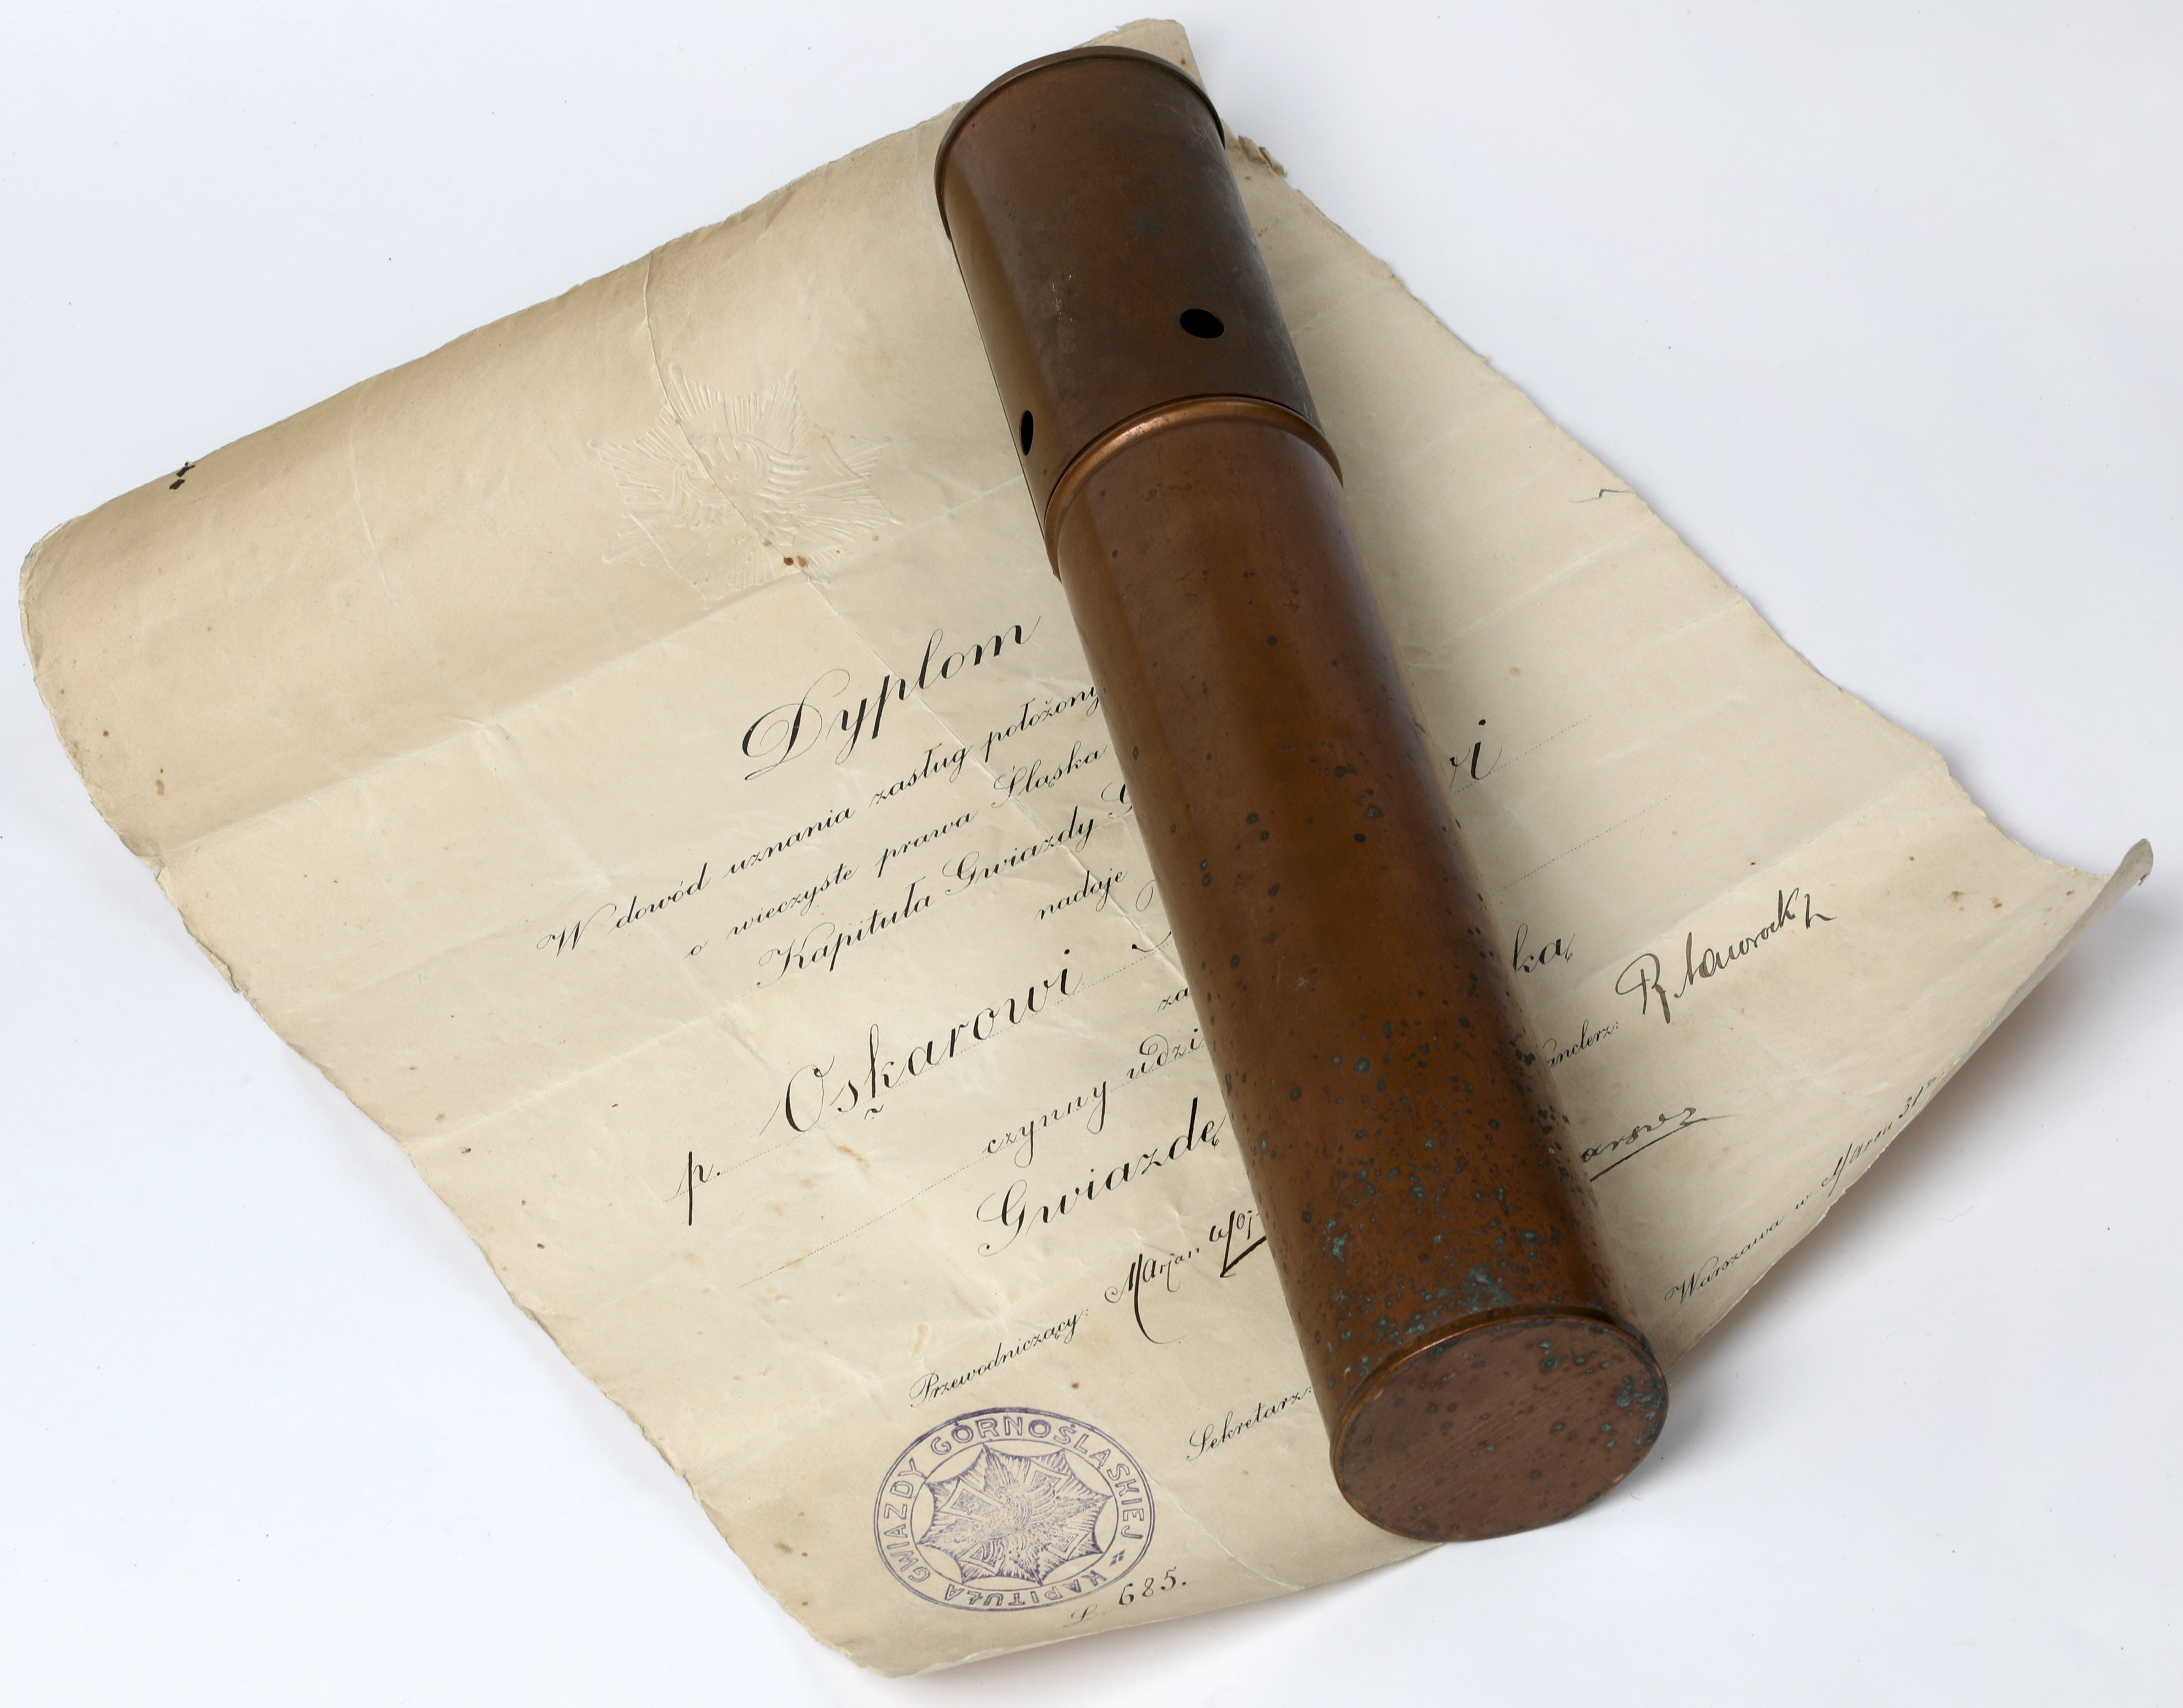 Dyplom
W dowód uznania zasług położony
o wieczyste prawa Śląska
Kapituła Gwiazdy G
nadaje
p. Oskarowi
ri
za
czynny udzi
Gwiazdę
ką
Przewodniczący: Marjan Woj
Kanclerz:
Sekretarz:
Warszawa w Marcu 31 r.
KAPITUŁA GWIAZDY GÓRNOŚLĄSKIEJ
L. 685.